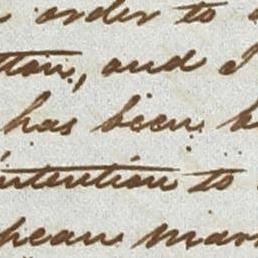 order to
and I
has been
intention to
pean mar